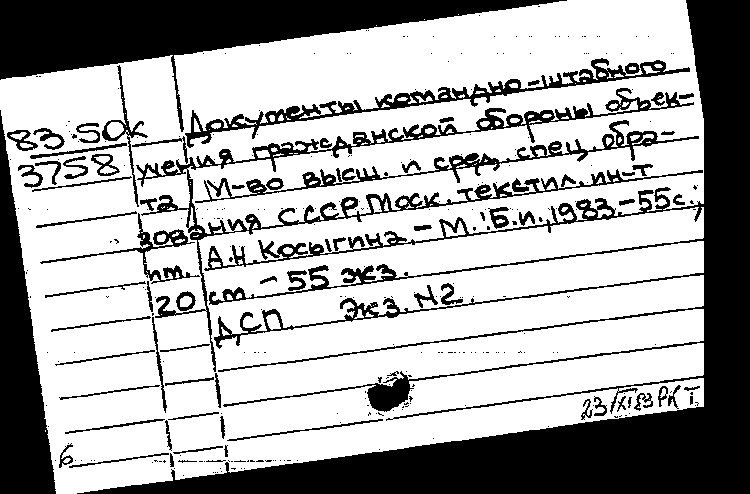 83.50к
3758
Документы командно-штабного
учения гражданской обороны объек-
та / М-во высш. и сред. спец. обра-
зования СССР, Моск. текстил. ин-т
им. А.Н. Косыгина. - М.: Б.и., 1983. - 55 с.;
20 см. - 55 экз.
ДСП. Экз. N2.
23/XI 83 РК Т
6